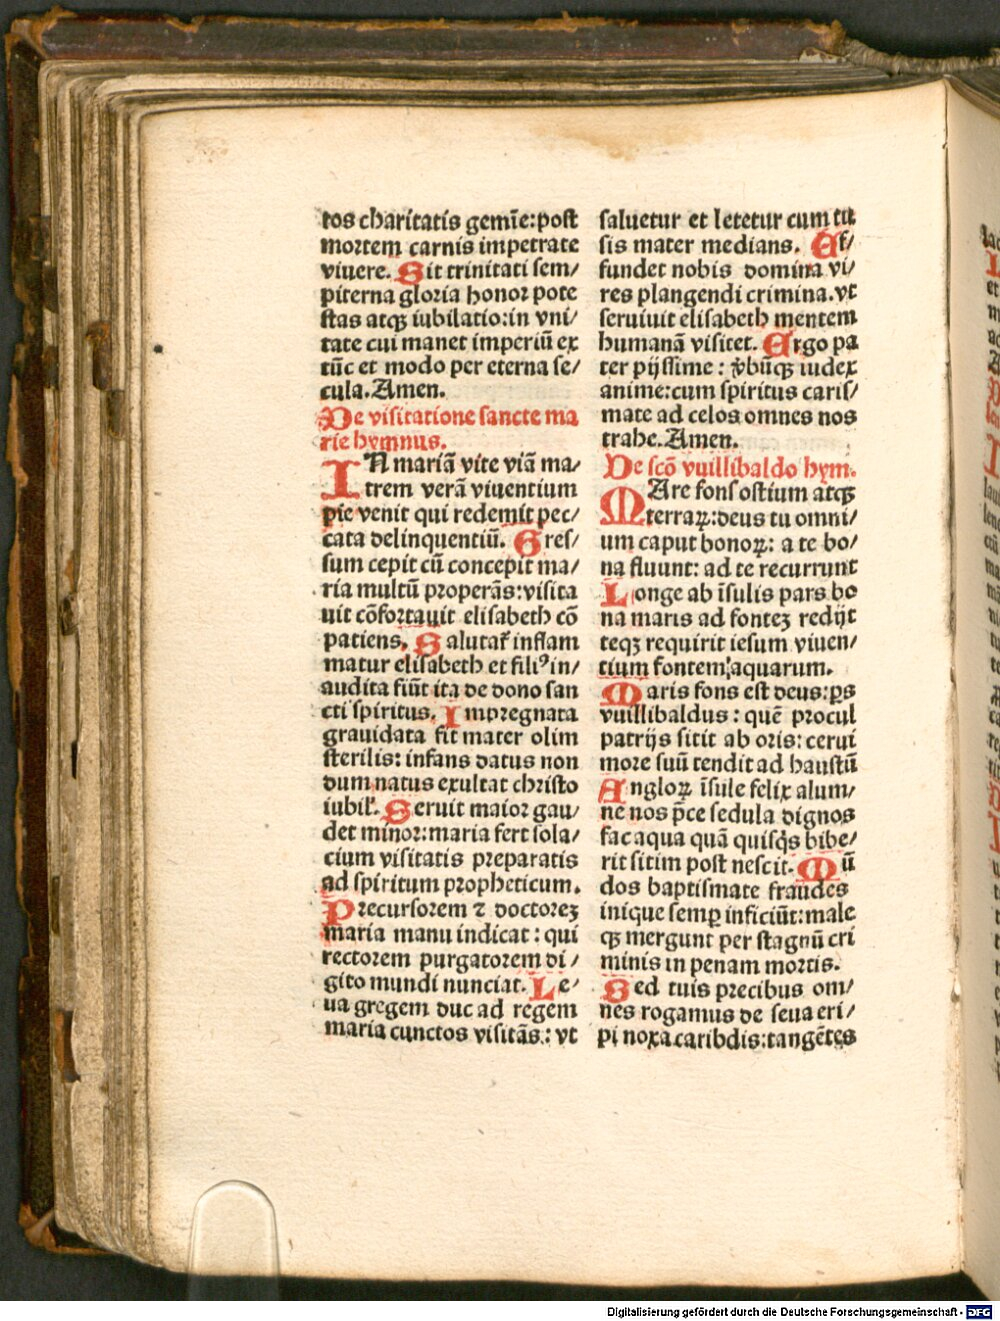 tos charitatis gemīe:post
mortem carnis impetrate
viuere. Sit trinitati sem/
piterna gloria honor pote
stas atqꝫ iubilatio:in vni/
tate cui manet imperiū ex
tūc et modo per eterna se/
cula. Amen.
De visitatione sancte ma
rie hymnus.
IN mariā vite viā ma/
trem verā viuentium
pie venit qui redemit pec/
cata delinquentiū. Gres/
sum cepit cū concepit ma/
ria multū properās:visita
uit cōfortauit elisabeth cō
patiens. Salutar̄ inflam
matur elisabeth et filiꝰ in/
audita fiūt ita de dono san
cti spiritus. Impregnata
grauidata fit mater olim
sterilis: infans datus non
dum natus exultat christo
iubil̄. Seruit maior gau/
det minor:maria fert sola/
cium visitatis preparatis
ad spiritum propheticum.
Precursorem ⁊ doctoreꝫ
maria manu indicat: qui
rectorem purgatorem di/
gito mundi nunciat. Le/
ua gregem duc ad regem
maria cunctos visitās: vt
saluetur et letetur cum tu
sis mater medians. Ef/
fundet nobis domina vi/
res plangendi crimina. vt
seruiuit elisabeth mentem
humanā visitet. Ergo pa
ter pijssime: v̄būqꝫ iudex
anime:cum spiritus caris/
mate ad celos omnes nos
trahe. Amen.
De scō vuillibaldo hym.
MAre fons ostium atqꝫ
terraꝝ:deus tu omni/
um caput bonoꝝ: a te bo/
na fluunt: ad te recurrunt
Longe ab īsulis pars bo
na maris ad fonteꝫ redijt
teqꝫ requirit iesum viuen/
tium fontem aquarum.
Maris fons est deus:ꝑs
vuillibaldus: quē procul
patrijs sitit ab oris: cerui
more suū tendit ad haustū
Angloꝝ īsule felix alum/
ne nos p̄ce sedula dignos
fac aqua quā quisq̄s bibe/
rit sitim post nescit. Mū
dos baptismate fraudes
inique semꝑ inficiūt:male
qꝫ mergunt per stagnū cri
minis in penam mortis.
Sed tuis precibus om/
nes rogamus de seua eri/
pi noxa caribdis:tangētes
Digitalisierung gefördert durch die Deutsche Forschungsgemeinschaft - DFG